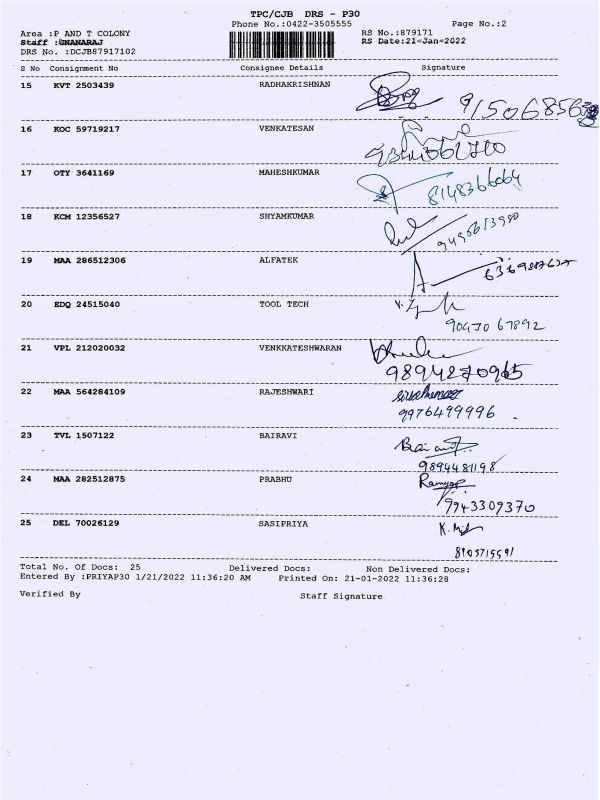 TPC/CJB DRS - P30
Phone No.:0422-3505555 Page No.:2
Area :P AND T COLONY RS No.:879171
Staff : RS Date:21-Jan-2022
DRS No. :DCJB87917102
S No Consignment No Consignee Details Signature
15 KVT 2503439 RADHAKRISHNAN
16 KOC 59719217 VENKATESAN
17 OTY 3641169 MAHESHKUMAR 8148366064
18 KCM 12356527 SHYAMKUMAR
19 MAA 286512306 ALFATEK
20 EDQ 24515040 TOOL TECH
90470 67892
21 VPL 212020032 VENKKATESHWARAN
22 MAA 564284109 RAJESHWARI
9976499996
23 TVL 1507122 BAIRAVI
9894481198
24 MAA 282512875 PRABHU Ramya
9943309370
25 DEL 70026129 SASIPRIYA
Total No. Of Docs: 25 Delivered Docs: Non Delivered Docs:
Entered By :PRIYAP30 1/21/2022 11:36:20 AM Printed On: 21-01-2022 11:36:28
Verified By Staff Signature